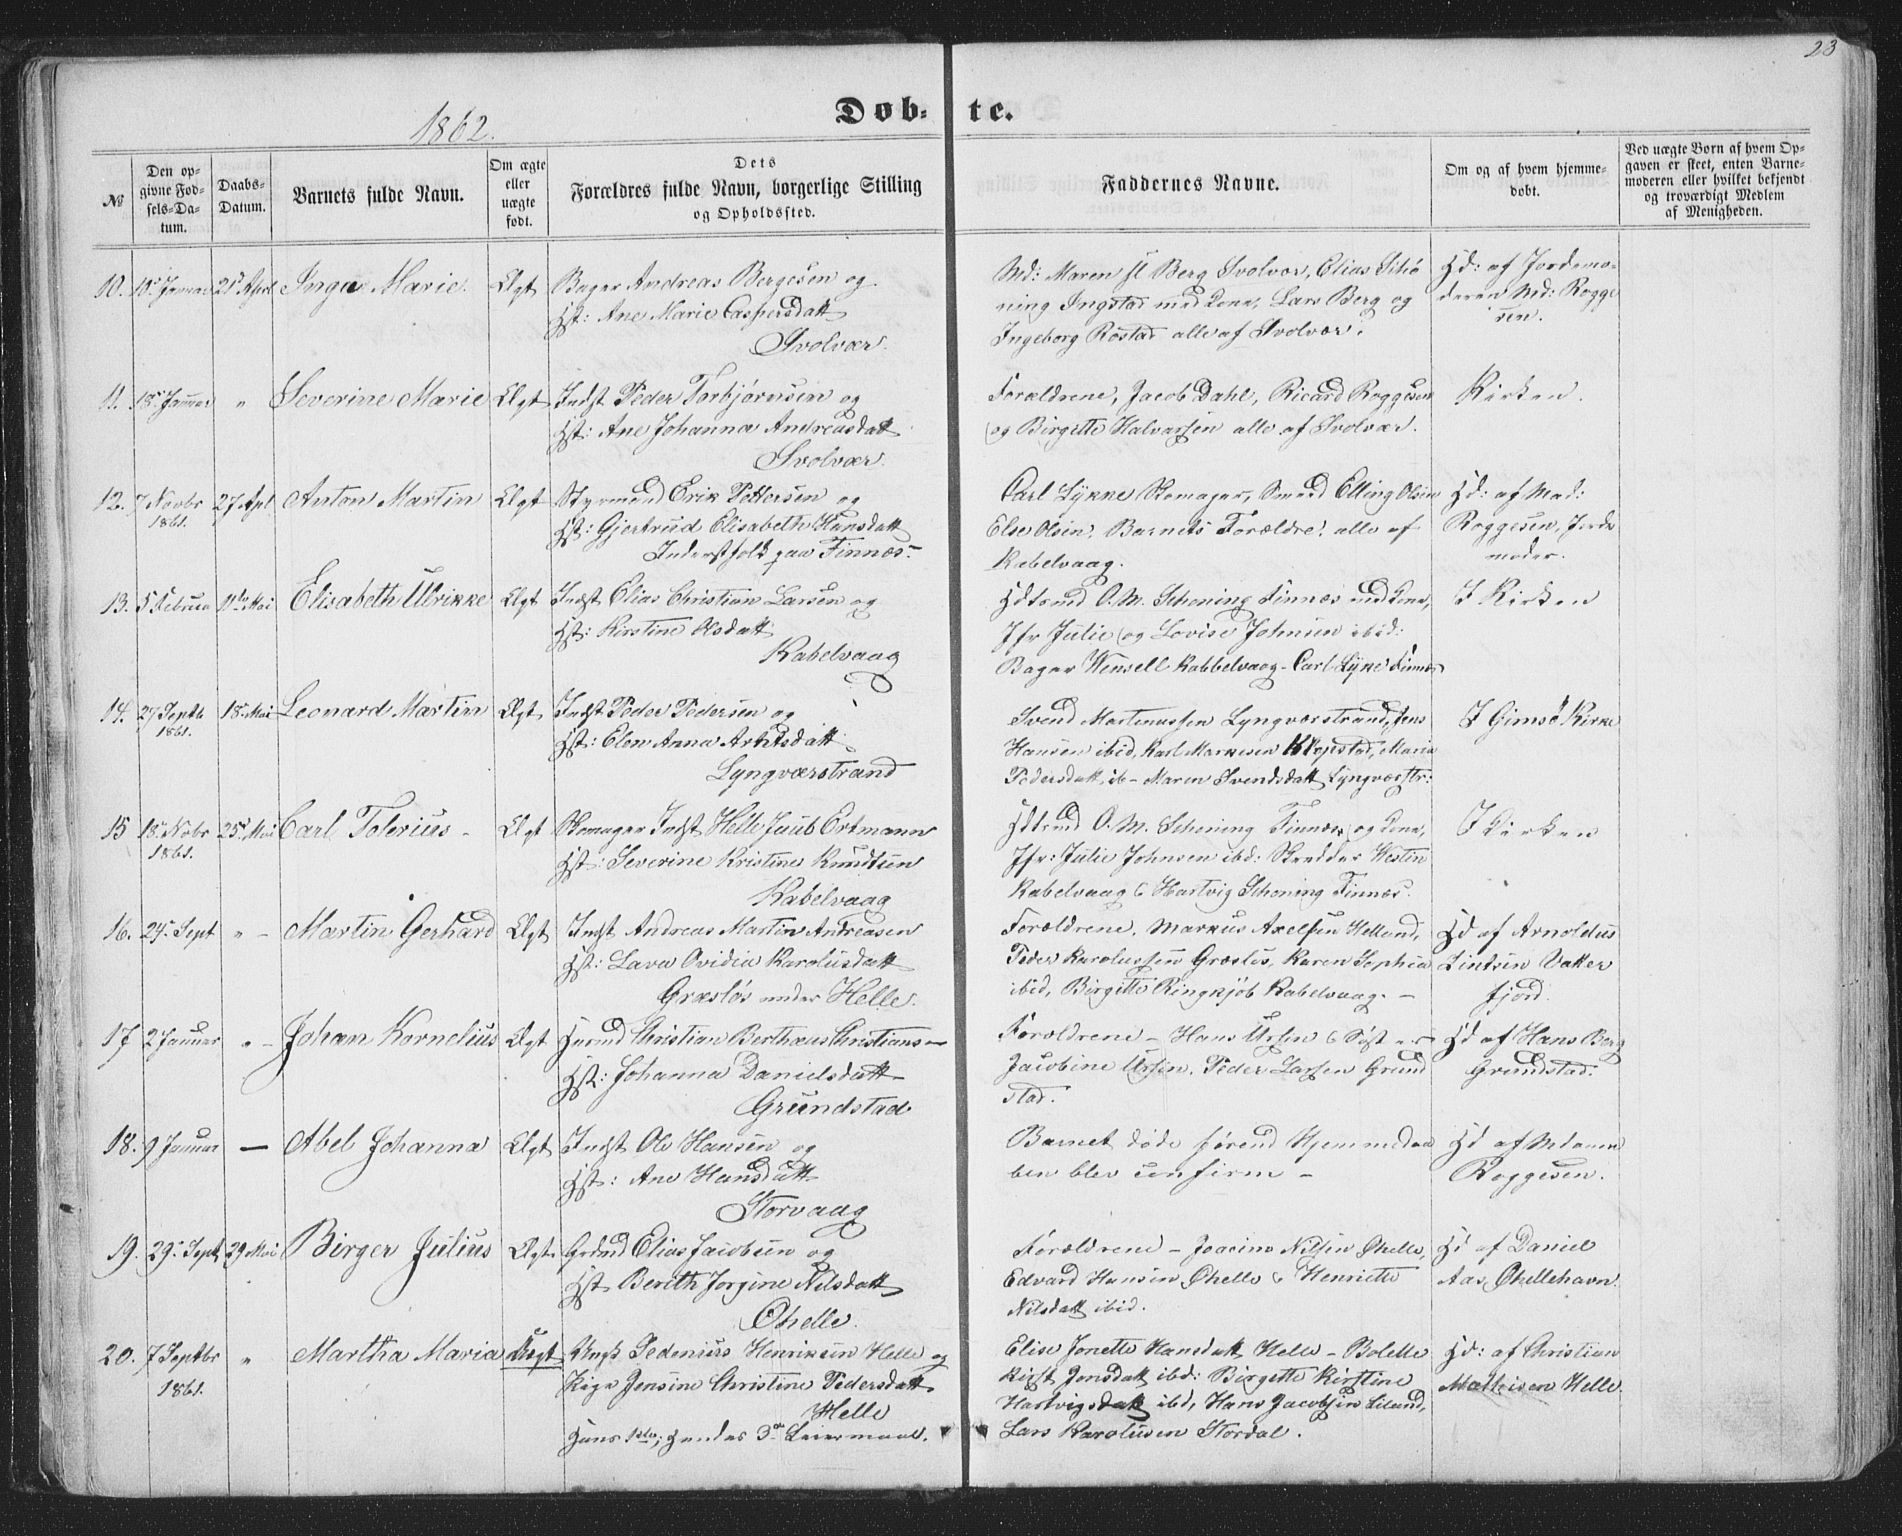 23
1862.
Døb-te.
№
Den op-
givne Fød-
sels-Da-
tum.
Daabs-
Datum.
Barnets fulde Navn.
Om ægte
eller
uægte
født.
Dets
Forældres fulde Navn, borgerlige Stilling
og Opholdssted.
Faddernes Navne.
Om og af hvem hjemme-
døbt.
Ved uægte Børn af hvem Op-
gaven er skeet, enten Barne-
moderen eller hvilket bekjendt
og troværdigt Medlem
af Menigheden.
10. 21 April Inga Marie. Ægt Bager Andreas Bergesen og
Hst: Ane Marie Caspersdatt
Svolvær.
Md: Maren Berg Svolvær, Elias Schø
ning Ingstad med Kona, Lars Berg og
Ingeborg Rostad alle af Svolvær.
Hd: af Jordemo-
deren Md: Rogge
sen.
11. 18 Januar " Severine Marie Ægt Indst Peder Torbjørnsen og
Hst: Ane Johanna Andreasdatt
Svolvær.
Forældrene, Jacob Dahl, Ricard Roggesen
og Birgitte Halvarsen alle af Svolvær.
Kirken.
12. 7 Novbr 27 Apl Anton Martin Ægt Styrmand Erik Pettersen og
1861.
Hst: Gjertrud Elisabeth Hansdatt
Inderstfolk paa Finnæs-
Carl Lykke Skomager, Smed Elling Olsen
Else Olsen. Barnets Forældre. alle af
Kabelvaag.
Hd: af Mad:
Roggesen, Jorde
moder.
13. 5 Februar 11te Mai Elisabeth Ulrikke Ægt Indst Elias Christian Larsen og
Hst: Kirstine Olsdatt
Kabelvaag
O. M. Schøning Finnæs med Kona,
Jfr Julie og Lovise Johnsen ibid:
Bager Wensell Kabbelvaag- Carl Lykke Finnæs
I Kirken
14. 27 Septb 18 Mai Leonard Martin Ægt Indst Peder Pedersen og
1861.
Hst: Elen Anna Arntsdatt
Lyngværstrand
Svend Mortenussen Lyngværstrand, Jens
Hansen ibid, Karl Markusen Klepstad, Maria
Pedersdatt ib- Maren Svendsdatt Lyngværstr:
I Gimsø Kirke
15 18 Nobr 25 Mai Carl Tolerius- Ægt Skomager Indst Helle Jaub Ertmann
1861.
Hst: Severine Kristine Knudsen
Kabelvaag
O. M. Schøning Finnæs og Kona,
Jfr: Julie Johnsen ibd: Skredder Westin
Kabelvaag & Hartvig Schøning Finnæs.
I Kirken
16. 24 Sept "- Martin Gerhard Ægt Indst Andreas Martin Andreasen
Hst: Lava Ovidia Karolusdatt
Græsløs under Helle.
Forældrene, Markus Axelsen Helland,
Peder Karolussen Græsløs, Karen Sophia
ibid, Birgitte Ringkjøb Kabelvaag.-
Hd af Arnoldus
Lintsen Vatter
fjord.
17 2 Januar "- Johan Kornelius Ægt Christian Berthæus Christians-
Hst: Johanna Danielsdatt
Grundstad
Forældrene- Hans Ursin & Søst
Jacobine Ursin. Peder Larsen Grund
stad.
Hd af Hans Berg
Grundstad.
18. 9 Januar — Abel Johanna Ægt Indst Ole Hansen og
Hst: Ane Hansdatt
Storvaag
Barnet døde førend Hjemmedaa
ben blev confirm-
Hd af Madame
Roggesen.
19. 29 Sept 29 Mai Birger Julius Ægt. Elias Jacobsen og
Hst Berith Jorgine Nilsdatt
Ørelle.
Forældrene- Joacim Nilsen Ørelle,
Edvard Hansen Ørelle & Henriette
Nilsdatt ibid.
Hd af Daniel
Aas, Ørellehavn.
20. 7 Septbr " Martha Maria Uægt Pedenius Henriksen Helle og
1861.
Pige Jensine Christine Pedersdatt
Helle
Hans 1ste, Hendes 3de Leiermaal.
Elise Jonette Hansdatt Helle- Bolette
Kirst Jensdatt ibd: Birgitte Kirstine
Hartvigsdatt ibd, Hans Jacobsen Liland,
Lars Karolusen Stordal.
Hd: af Christian
Mathisen Helle.